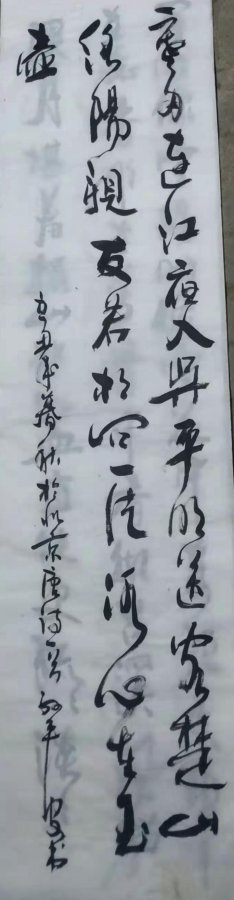 寒雨连江夜入吴平明送客楚山
洛阳亲友若相问一片冰心在玉
壶
辛丑年暮秋于北京唐诗一首